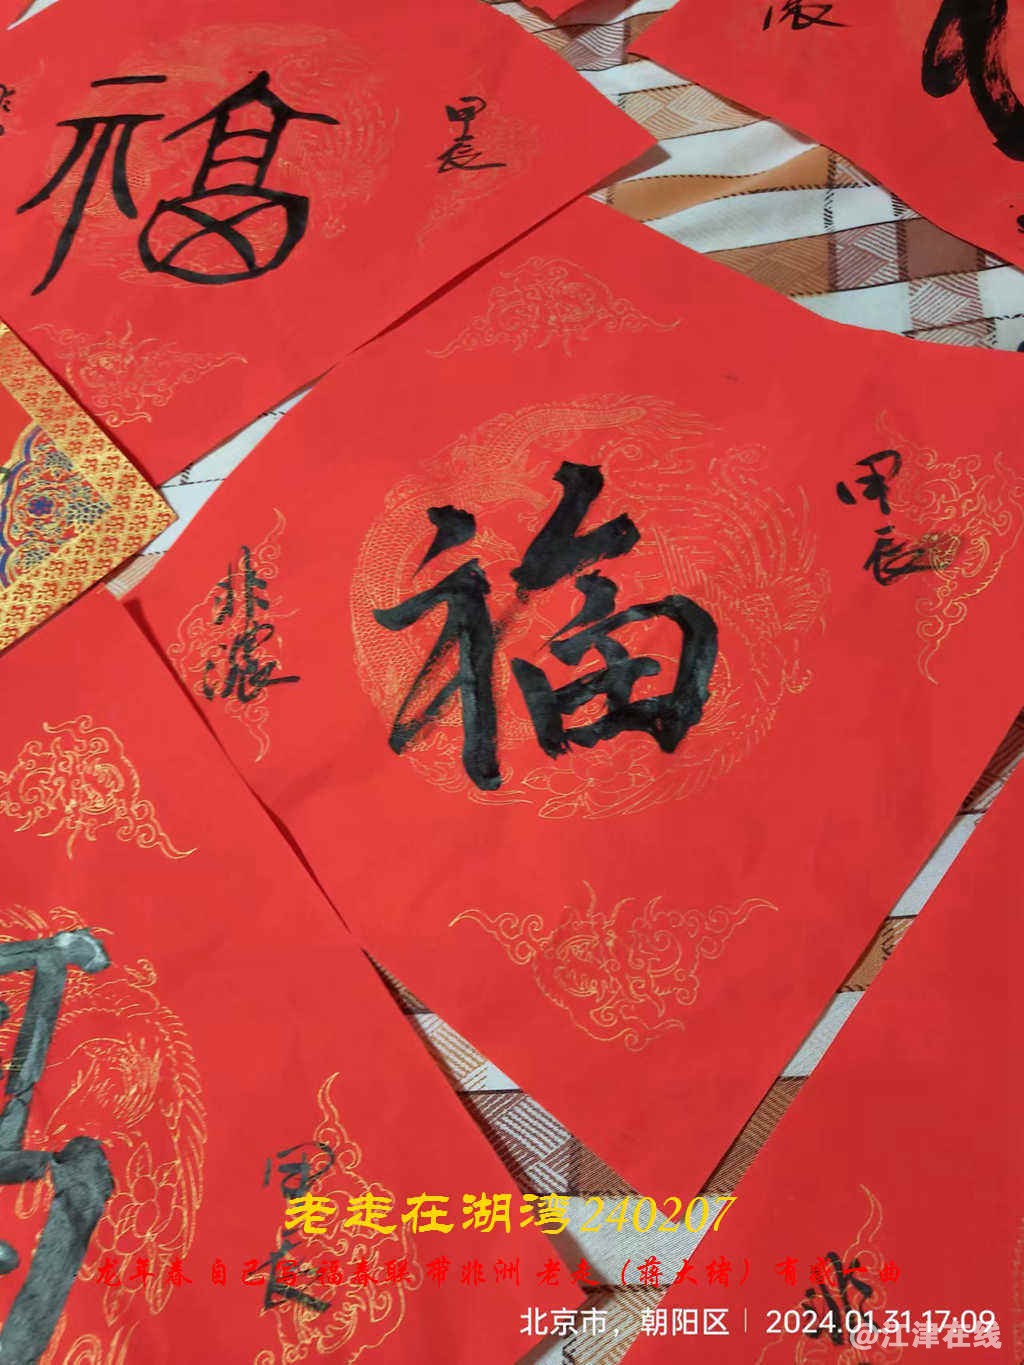 福
甲辰
福
甲辰
非
甲辰
非
老走在湖湾240207
龙年春 自己写 福春联 带非洲 老走（蒋大绪）有感一曲
北京市，朝阳区 | 2024.01.31 17:09
@江津在线